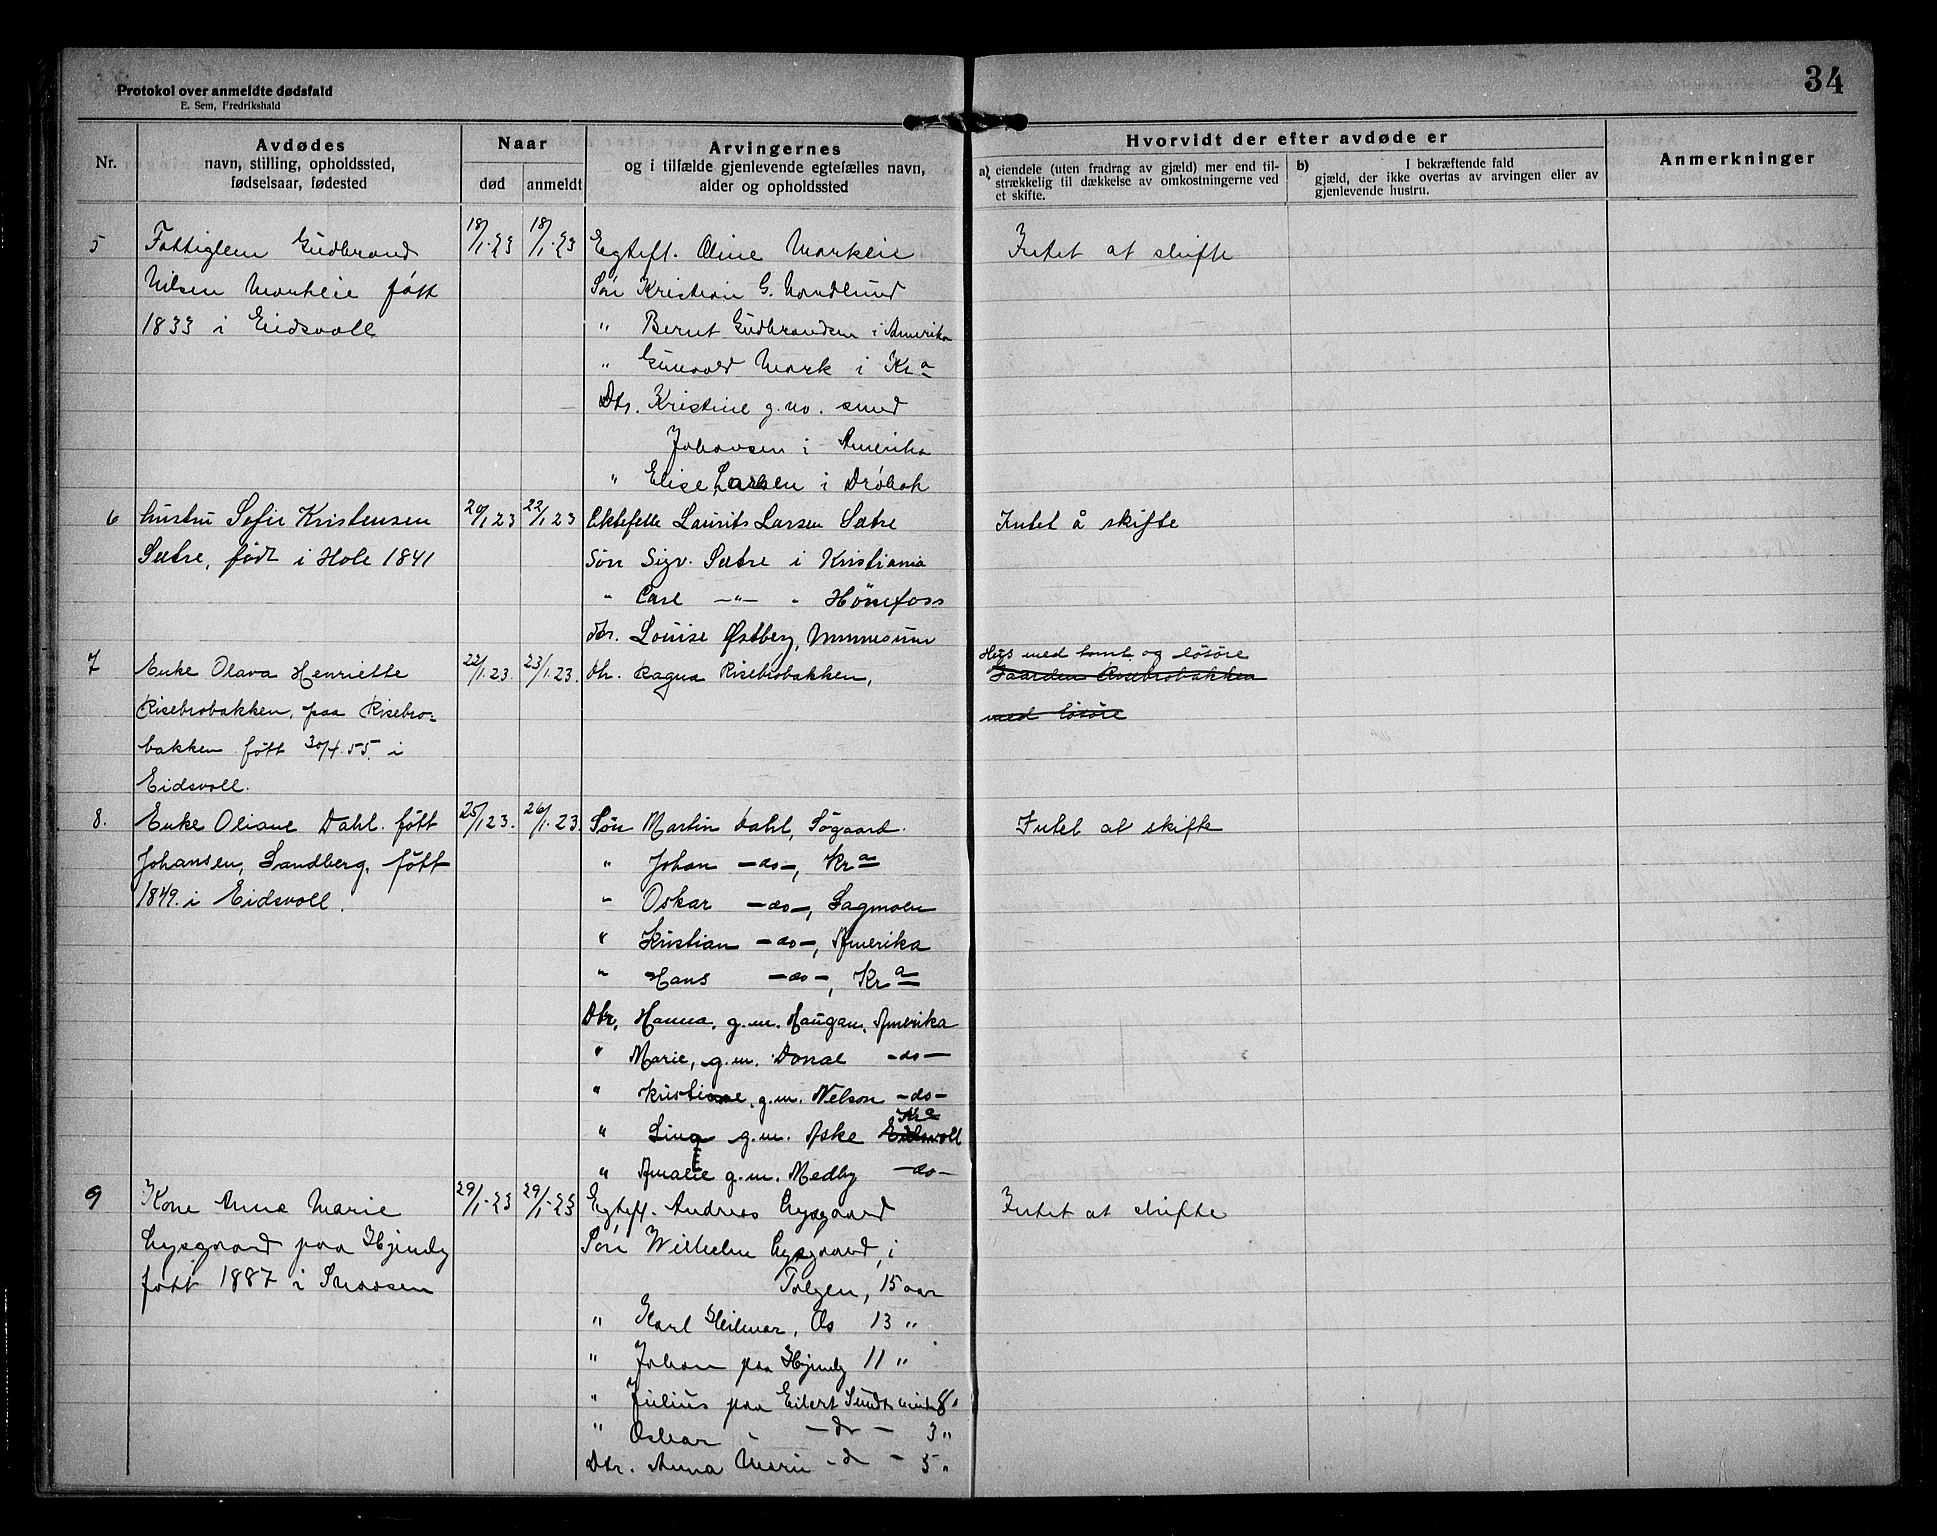 Protokol over anmeldte dødsfald
E. Sem, Fredrikshald
34
Nr.
Avdødes
navn, stilling, opholdssted,
fødselsaar, fødested
Naar
død
anmeldt
Arvingernes
og i tilfælde gjenlevende egtefælles navn,
alder og opholdssted
Hvorvidt der efter avdøde er
a) eiendele (uten fradrag av gjæld) mer end til-
strækkelig til dækkelse av omkostningerne ved
et skifte.
b) I bekræftende fald
gjæld, der ikke overtas av arvingen eller av
gjenlevende hustru.
Anmerkninger
5
Fattiglem Gudbrand
Nilsen Markeie født
1833 i Eidsvoll
18/1.23
18/1.23
Egtef. Oline Markeie
Søn Kristian G. Nordlund
" Bernt Gudbrandsen i Amerika
" Gunvald Mork i Kra
Dtr. Kristine g.m. smed
Johansen i Amerika
" Elise Larsen i Drøbak
Intet at skifte
6
hustru Sofie Kristensen
Sætre, født i Hole 1841
20/1 23
22/1 23
Ektefelle Laurits Larsen Sætre
Sønn Sigv. Sætre i Kristiania
" Carl —"— " Hønefoss
dtr. Louise Østberg, Minnesund
Intet å skifte
7
Enke Olava Henriette
Risebrobakken, paa Risebro-
bakken født 30/4.55. i
Eidsvoll.
22/1.23.
23/1.23.
Dtr. Ragna Risebrobakken,
Hus med tomt og løsøre
Gaarden Risebrobakken
med løsøre
8.
Enke Oliane Dahl. født
Johansen, Sandberg, født
1849. i Eidsvoll.
25/1 23.
26/1.23.
Søn Martin Dahl, Søgaard.
" Johan —do—, Kra
" Oskar —do—, Sagmoen
" Kristian —do—, Amerika
" Hans —do—, Kra
Dtr, Hanna, g.m. Haugan, Amerika
" Marie, g.m. Donal —do—
" Kristine, g.m. Nelson —do—
Kra
" Lina g.m. Aske Eidsvoll
" Amalie g.m. Medby —do—
Intet at skifte
9
Kone Anna Marie
Lysgaard paa Hjemly
født 1887 i Snaasen
29/1.23
29/1.23
Egtef. Andreas Lysgaard
Søn Wilhelm Lysgaard, i
Tolgen, 15 aar
" Karl Hilmar, Os 13 "
" Johan paa Hjemly 11 "
" Julius paa Eilert Sundts minde 8 "
" Oskar " —do— 3 "
Dtr. Anna Marie —do— 5 "
Intet at skifte